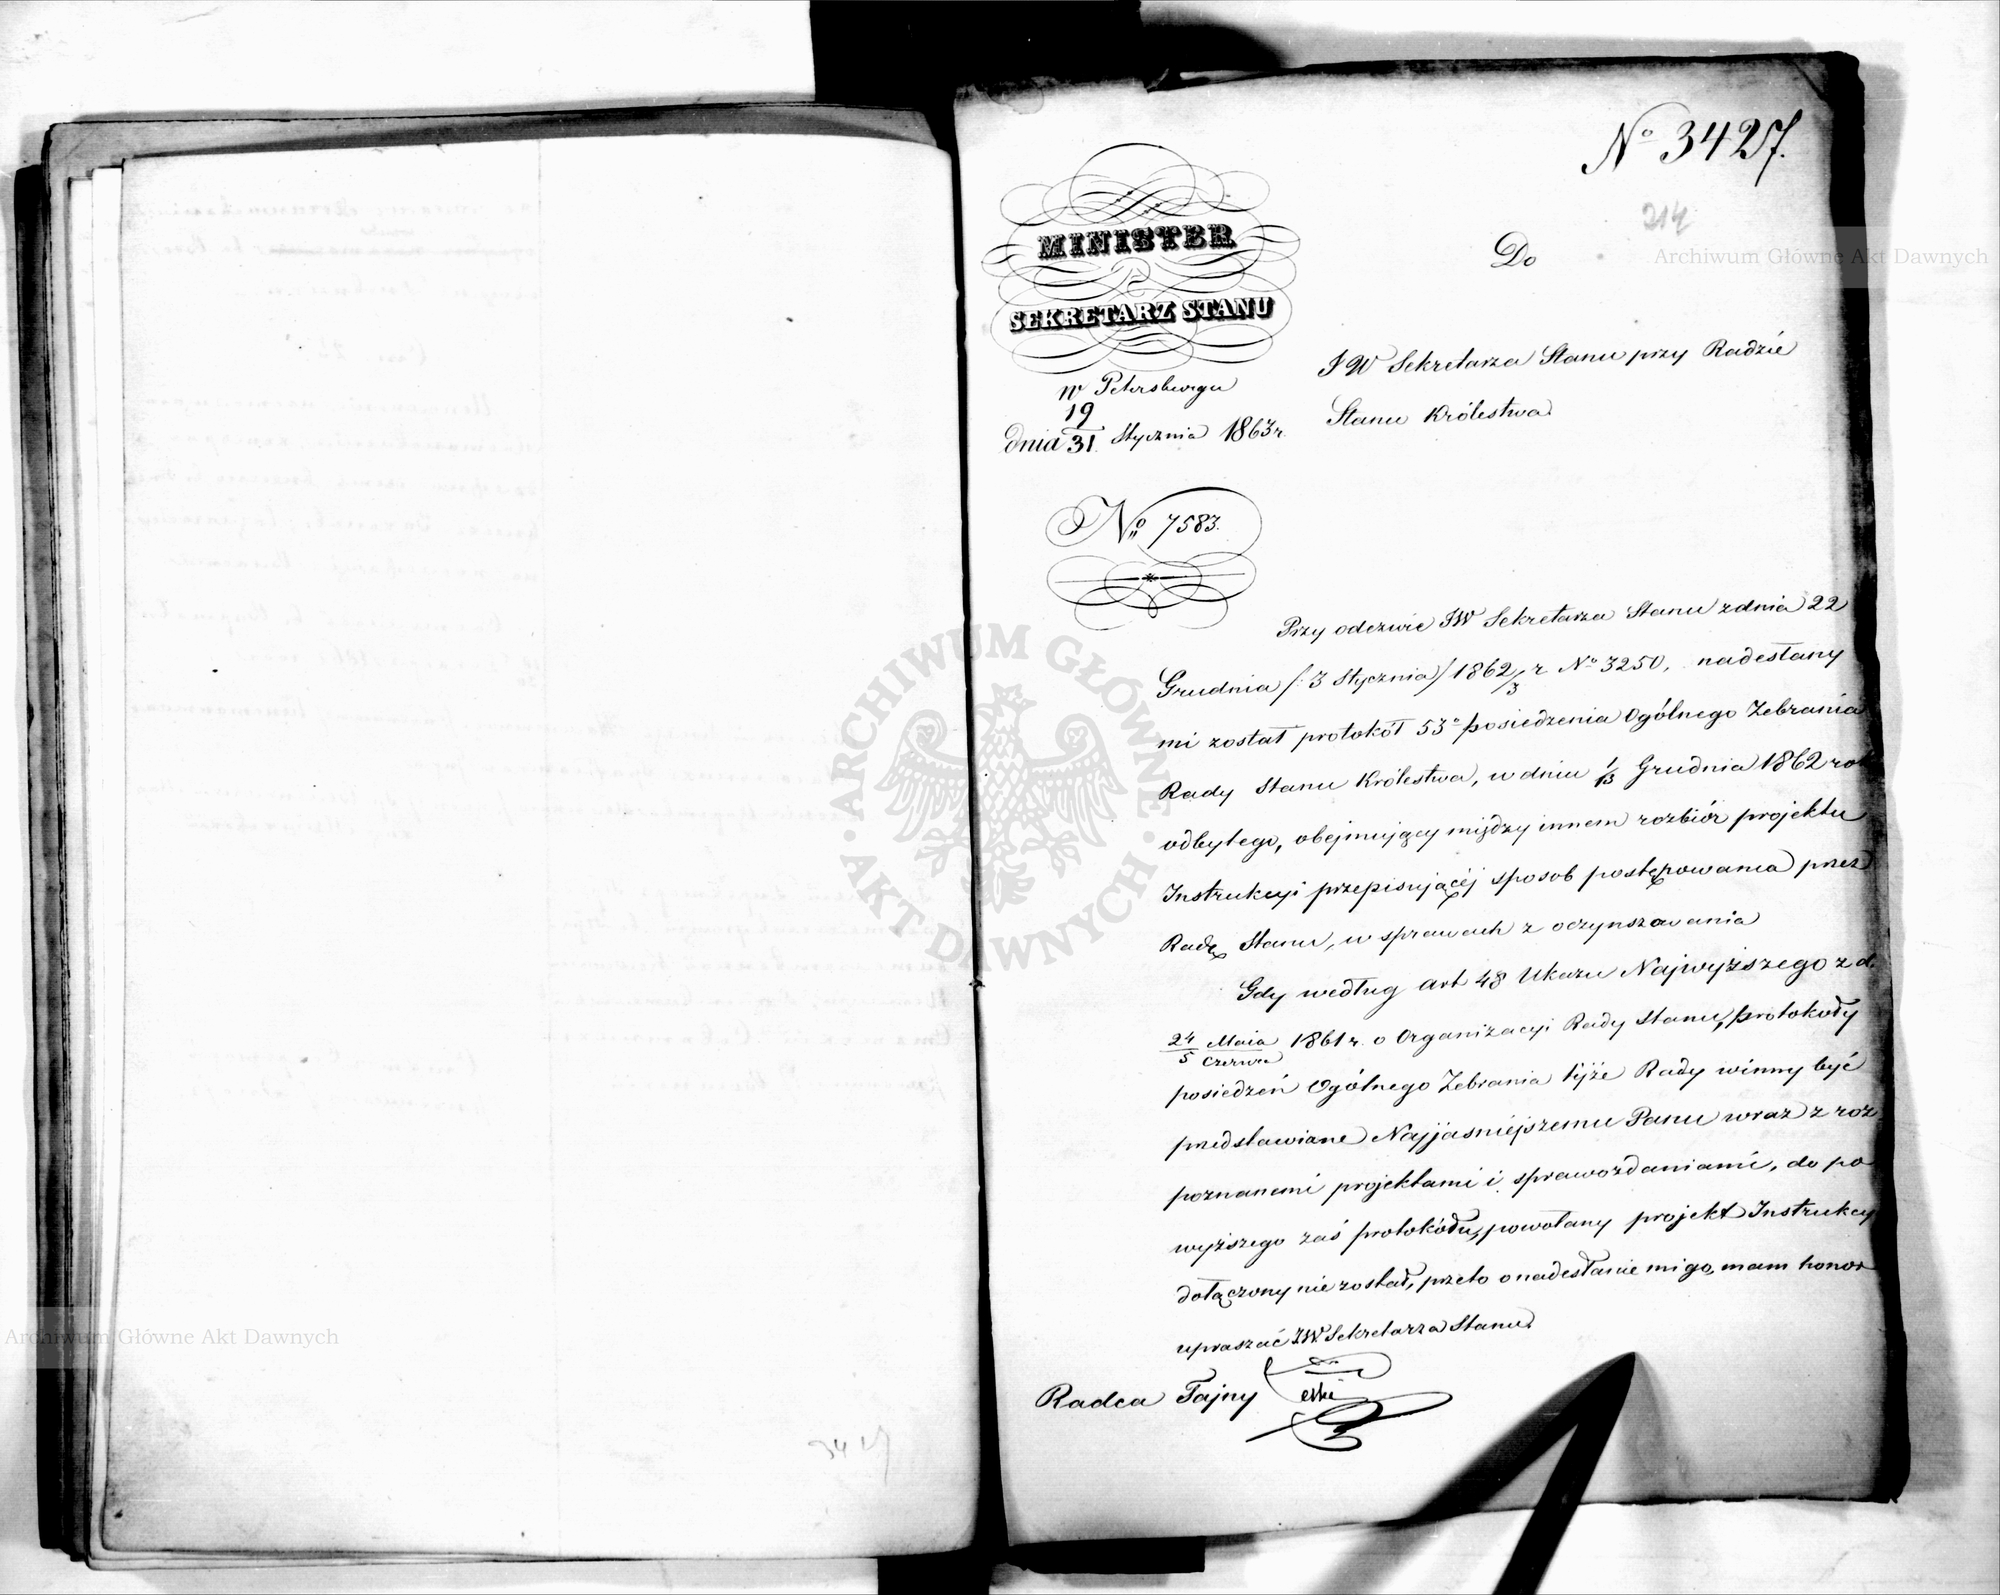 No 3427.
214
MINISTER
SEKRETARZ STANU
w Petersburgu
dnia 19/31 Stycznia 1863 r.
No 7583.
Do
JW Sekretarza Stanu przy Radzie
Stanu Królestwa
Przy odezwie JW Sekretarza Stanu z dnia 22
Grudnia /: 3 Stycznia/ 1862/3 r No 3250, nadesłany
mi został protokół 53o posiedzenia Ogólnego Zebrania
Rady Stanu Królestwa, w dniu 1/13 Grudnia 1862 rok
odbytego, obejmujący między innem rozbiór projektu
Instrukcyi przepisującéj sposob postępowania przez
Radę Stanu, w sprawach z oczynszowania
Gdy według art 48 Ukazu Najwyższego z d.
24 Maia / 5 Czerwca 1861 r. o Organizacyi Rady Stanu, protokoły
posiedzeń Ogólnego Zebrania tyjże Rady winny być
przedstawiane Najjaśniejszemu Panu wraz z roz
poznanemi projektami i sprawozdaniami, do po
wyższego zaś protokółu, powołany projekt Instrukcy
dołączony nie został, przeto o nadesłanie mi go, mam honor
upraszać JW. Sekretarza Stanu.
Radca Tajny
3427
Archiwum Główne Akt Dawnych
Archiwum Główne Akt Dawnych
ARCHIWUM GŁÓWNE AKT DAWNYCH